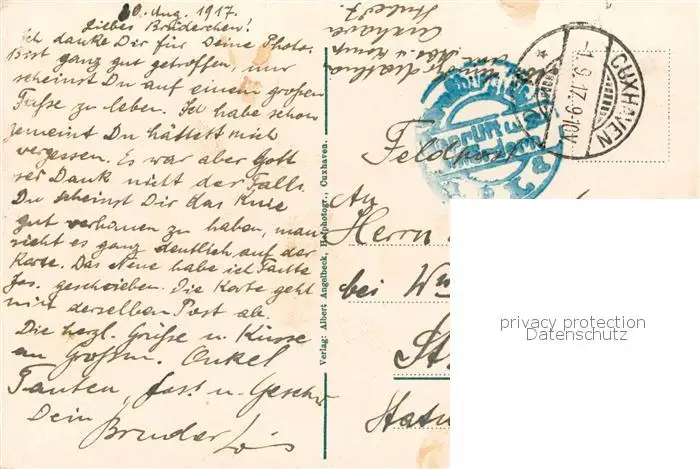 30. Aug. 1917.
Liebes Brüderchen!
Ich danke Dir für Deine Photo.
Bist ganz gut getroffen, nur
scheinst Du auf einem großen
Fuße zu leben. Ich habe schon
gemeint Du hättest mich
vergessen. Es war aber Gott
sei Dank nicht der Fall.
Du scheinst Dir das Knie
gut verhauen zu haben, man
sieht es ganz deutlich auf der
Karte. Das Neue habe ich Tante
Jos. geschrieben. Die Karte geht
mit derselben Post ab.
Die herzl. Grüße u. Küsse
an Großm. Onkel
Tanten, Jos. u. Geschw.
Dein
Bruder
Verlag: Albert Angelbeck, Hofphotogr., Cuxhaven.
Cuxhaven
CUXHAVEN
-1.9.17.9-10V
Feldpost
An
Herrn
bei
privacy protection
Datenschutz